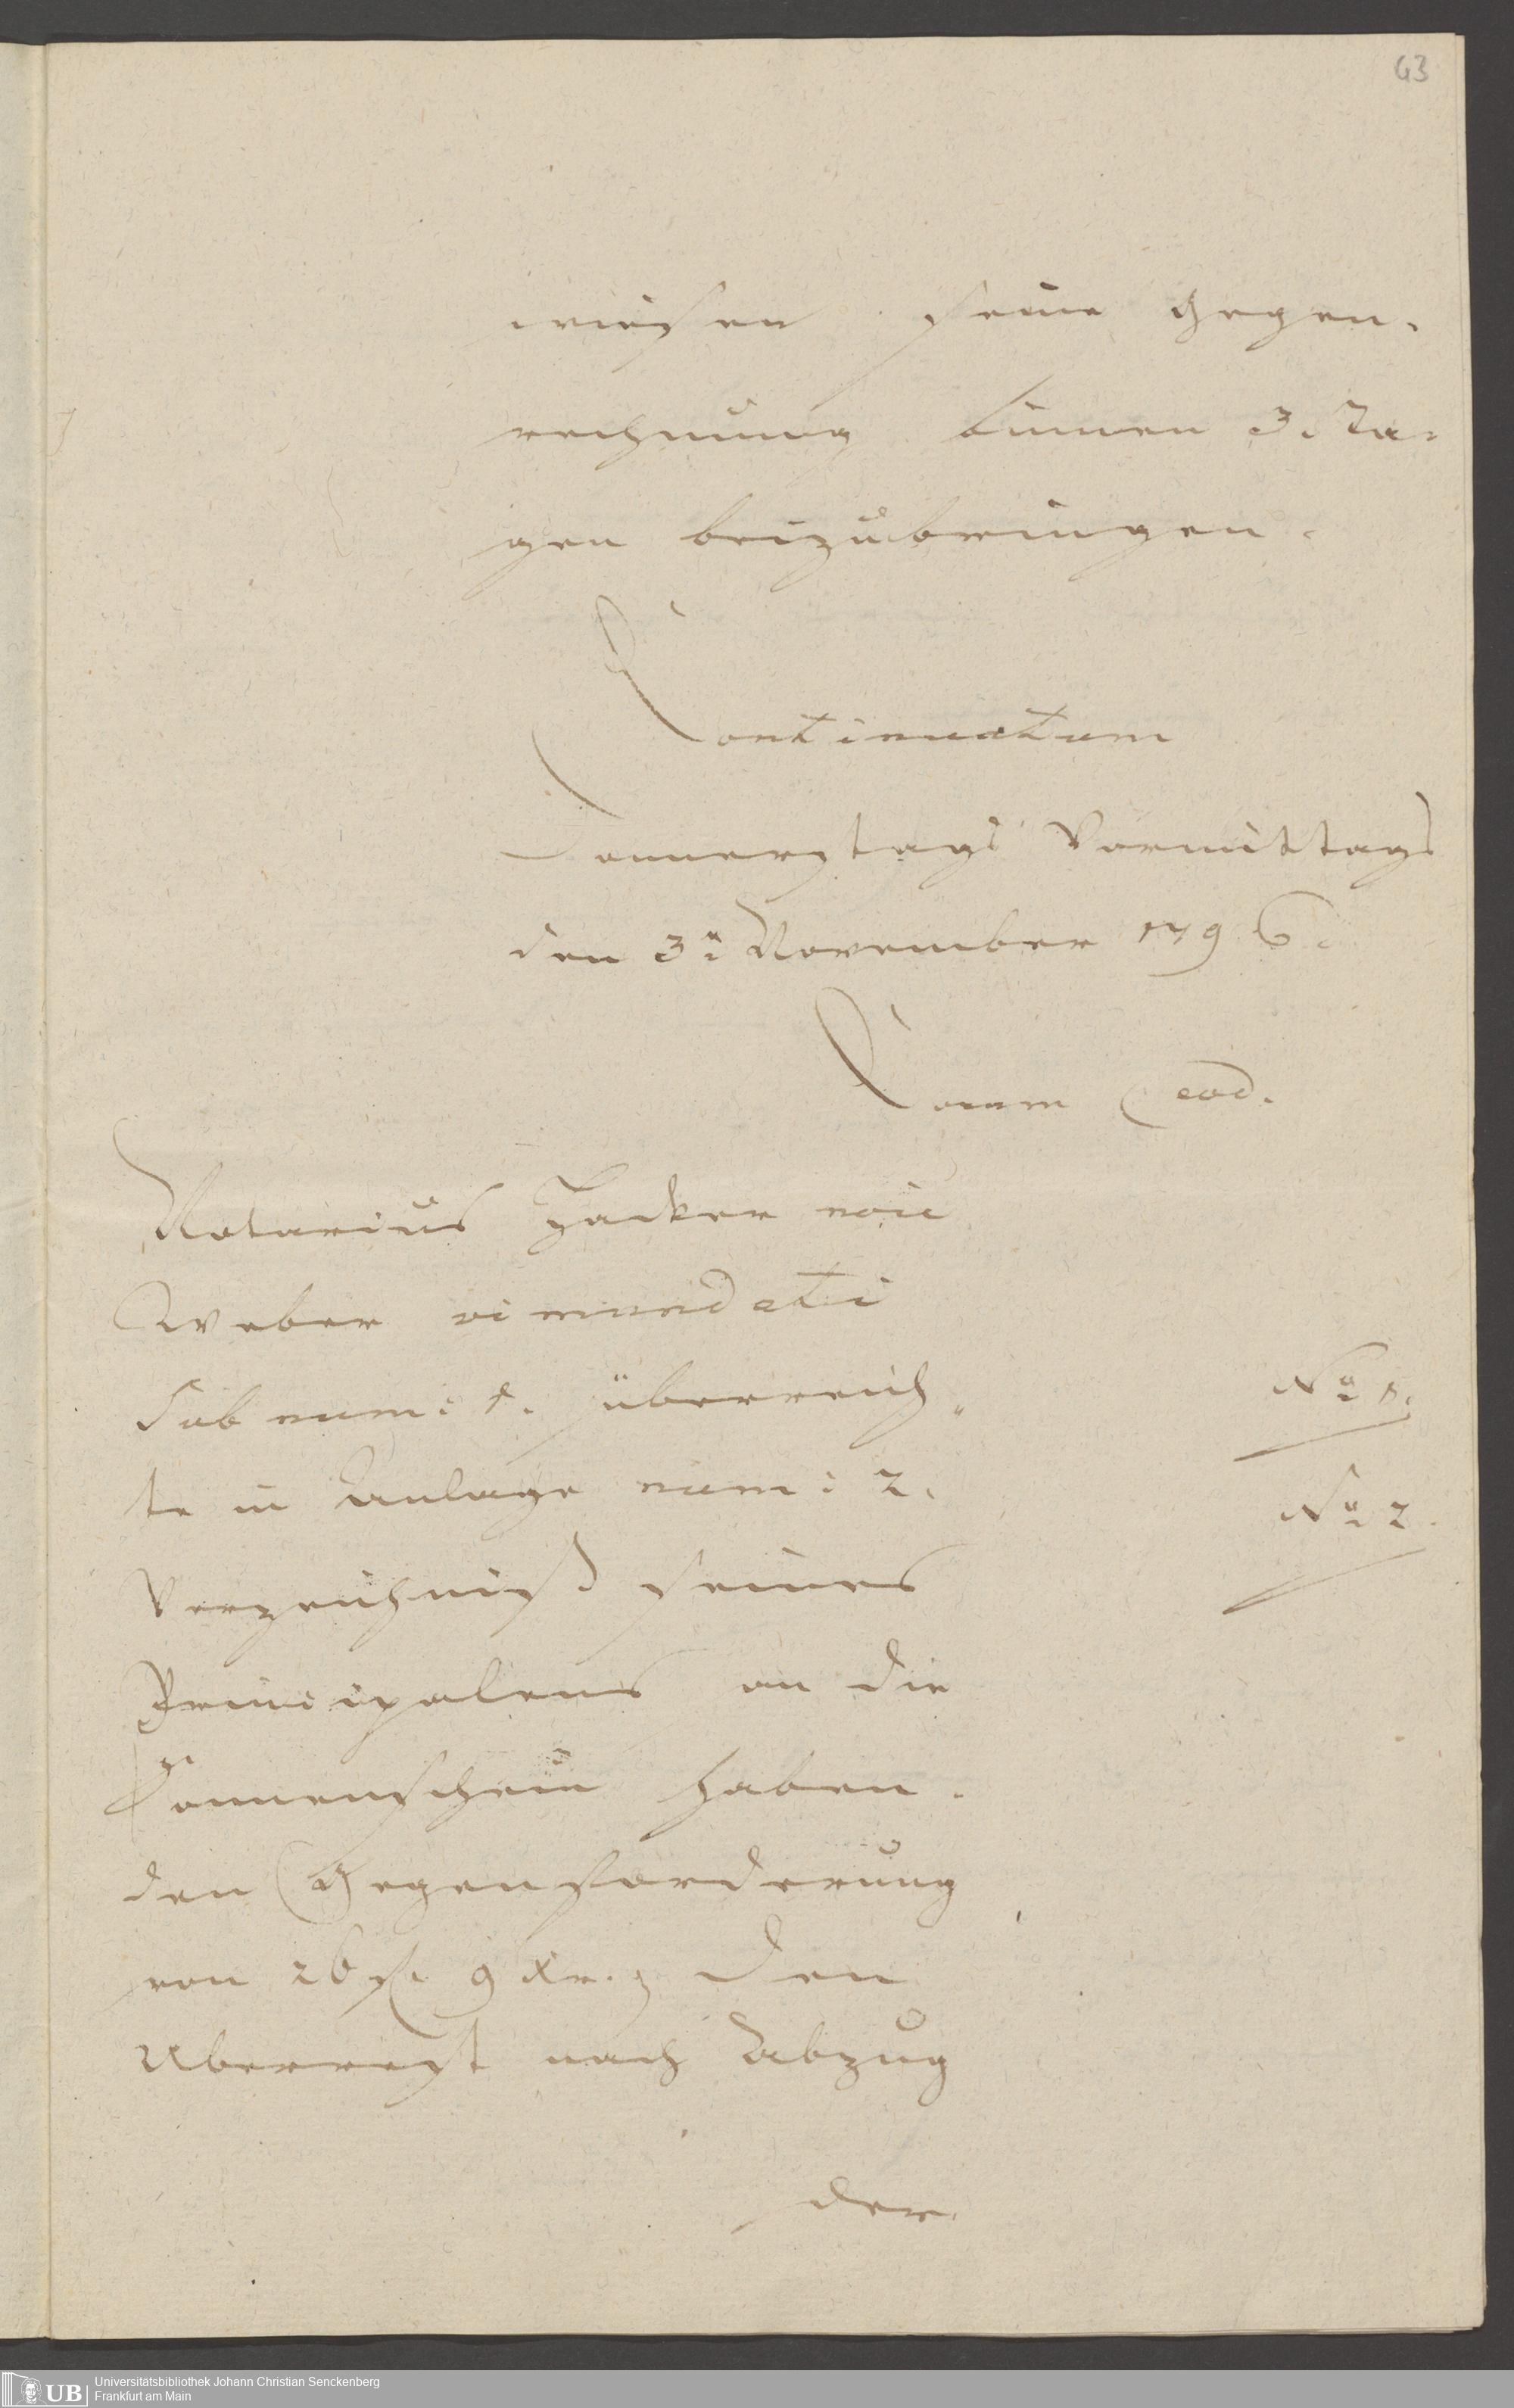 63
wiesen seine Gegen-
rechnung binnen 3. Ta-
gen beizubringen.
Continuatum
Donnerstags Vormittags
den 3n. November 1796.
Coram eod.
Notarius Zacker noie
Weber vi mandati
sub num: 1. überreich„
No. 1.
te in Anlage num: 2.
No. 2.
Verzeichniß seines
Principalens an die
Sonnenschein haben-
den Gegenforderung
von 26 fl. 9 Xr. den
Überrest nach Abzug
der
UB
Universitätsbibliothek Johann Christian Senckenberg
Frankfurt am Main